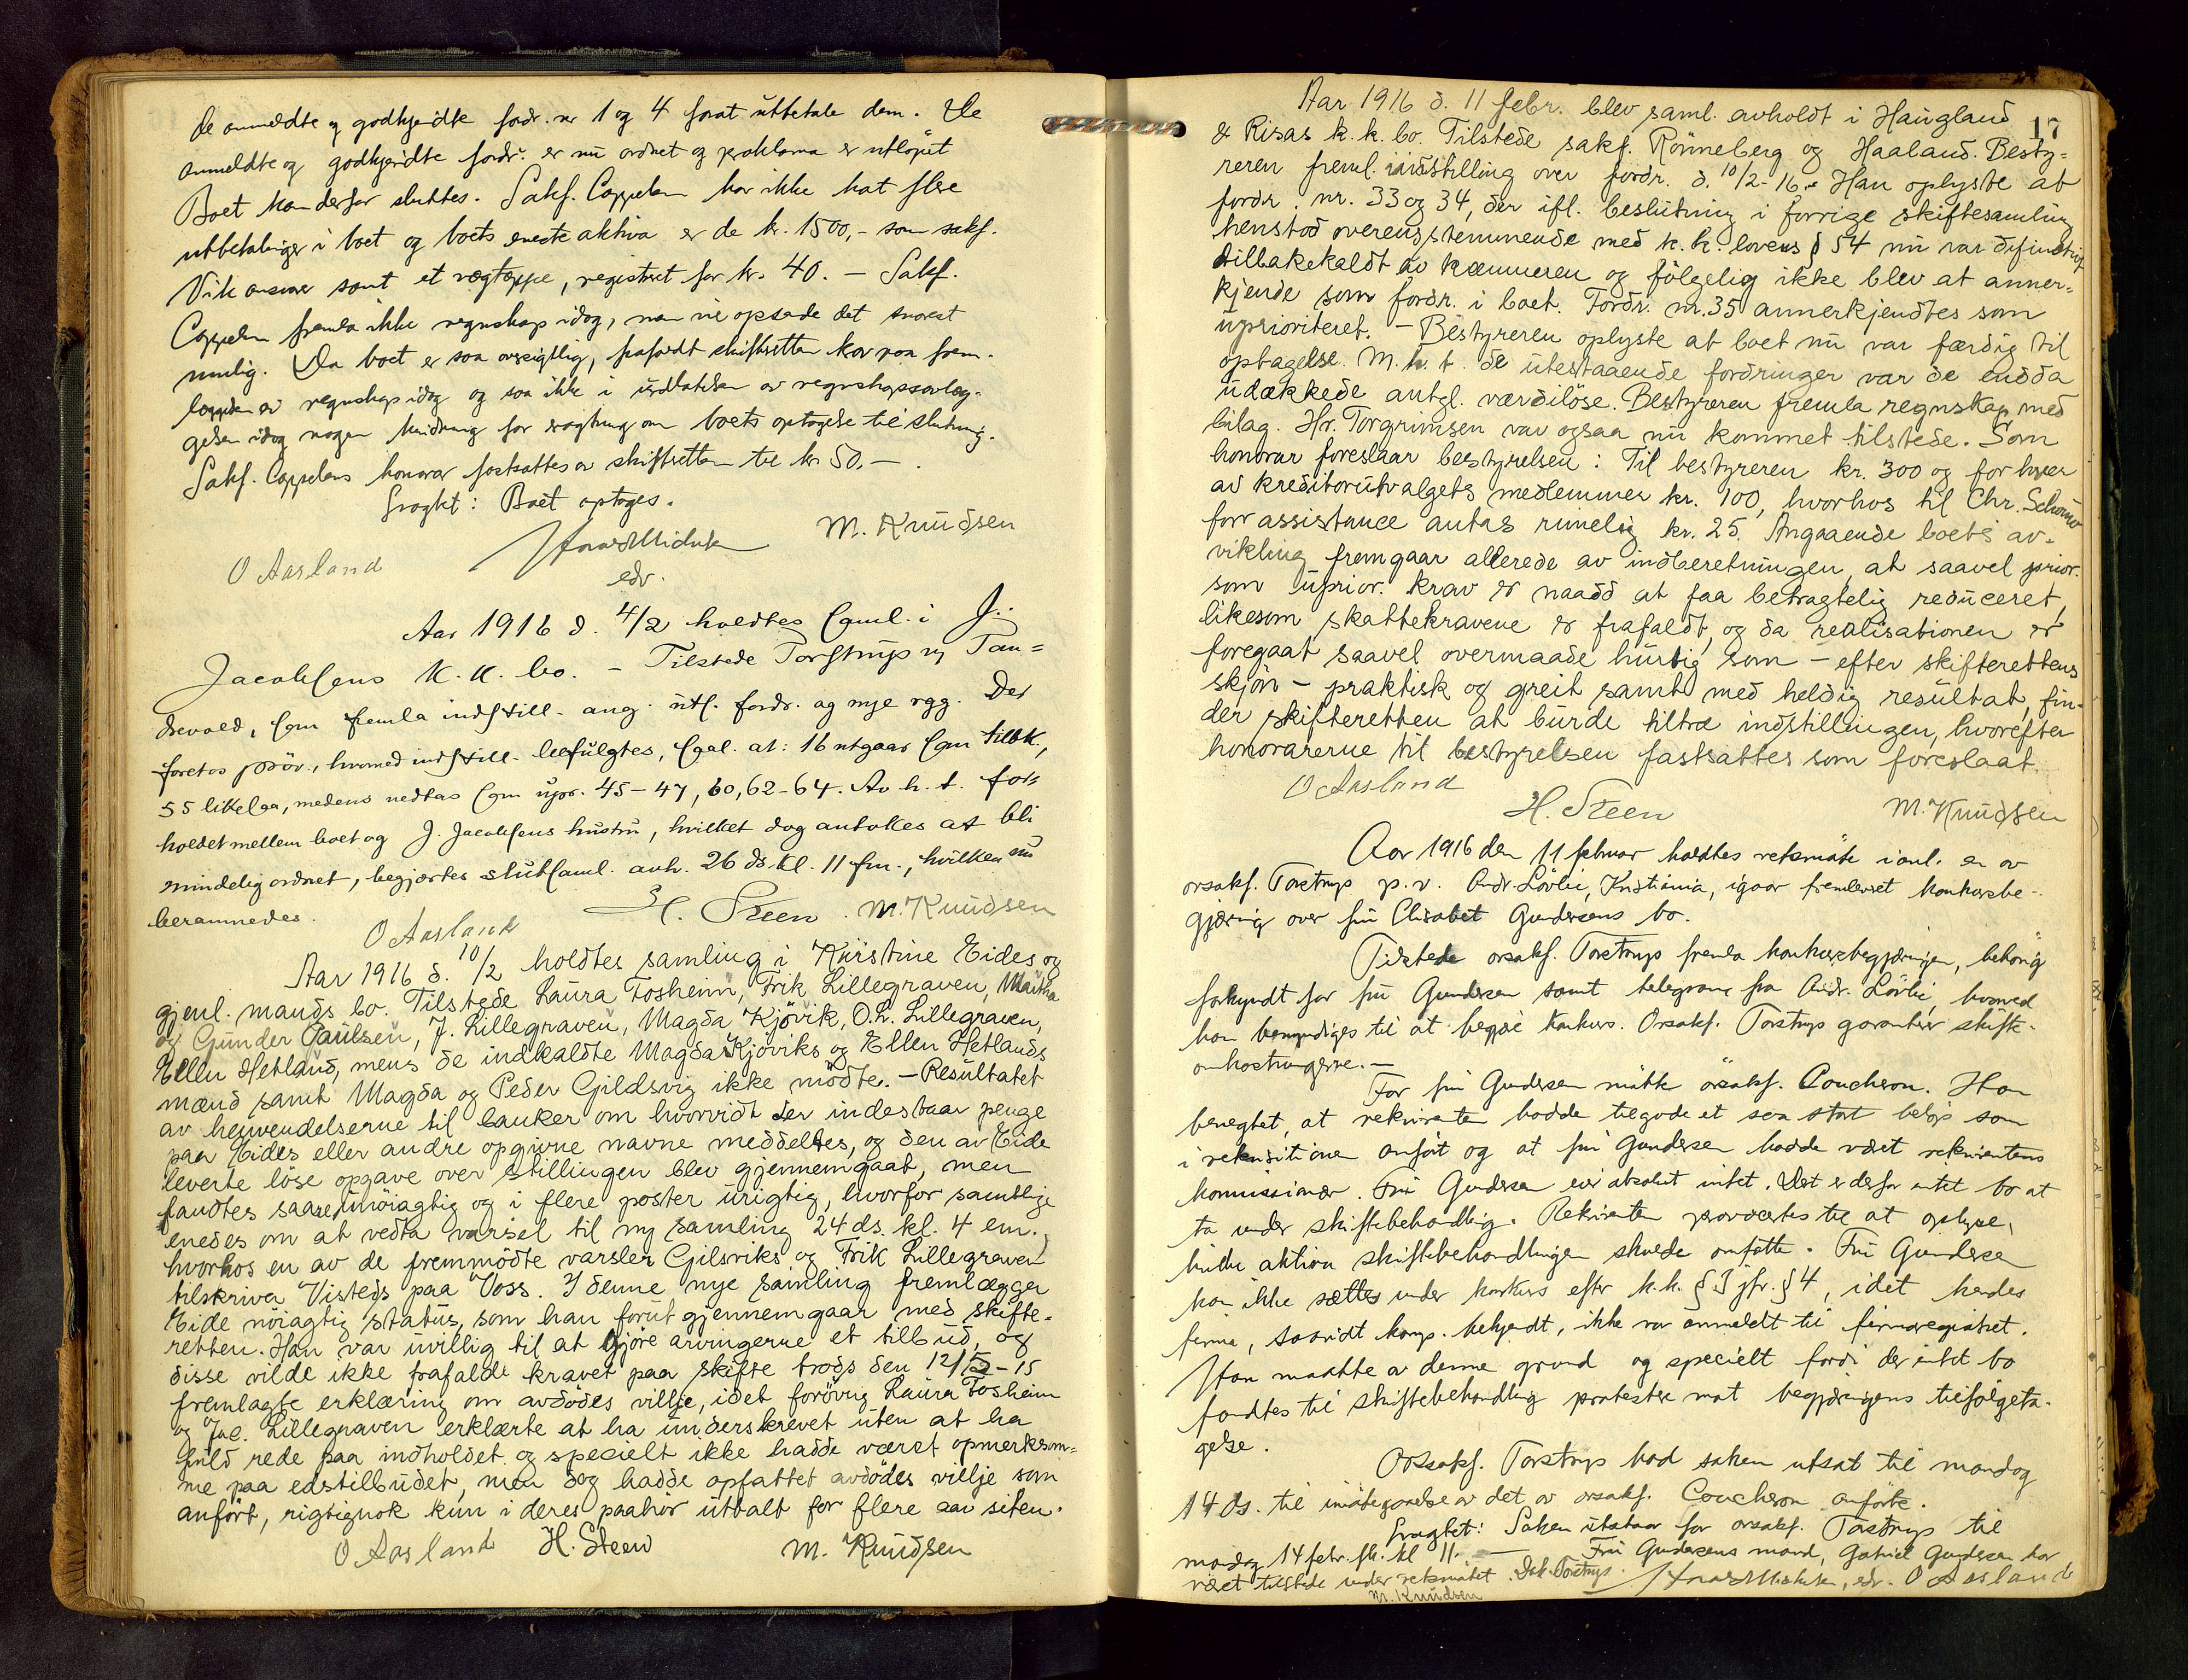 de anmeldte og godkjendte fordr. nr 1 og 4 forat utbetale dem. De
anmeldte og godkjendte fordr. er nu ordnet og proklama er utløpet
Boet kan derfor sluttes. Sakf. Coppelen har ikke hat flere
utbetalinger i boet og boets eneste aktiva er de kr. 1500,- som sakf.
Vik ansvarer samt et vægtæppe, registreret for kr. 40. – Sakf.
Coppelen fremla ikke regnskap idag, men vil opsende det snarest
mulig. Da boet er saa oversigtlig, frafaldt skifteretten krav paa frem-
læggelse av regnskap idag og saa ikke i undlatelsen av regnskapsavlæg-
gelsen idag nogen hindring for avsigtning om boets optagelse til slutning.
Sakf. Coppelens honorar fastsattes av skifteretten til kr 50.–.
Avsagt: Boet optages.
M. Knudsen
O Aasland
edv.
Aar 1916 d. 4/2 holdtes saml. i J.
Jacobsens k. k. bo. – Tilstede Torstrup og Tan=
devold, som fremla indstill. ang. uts. fordr. og nye rgg. Der
foretos prøv., hvorved indstill. befulgtes, saal. at: 16 utgaar som tilbk.,
55 likesaa, medens vedtas som upr. 45–47, 60, 62–64. Av h. t. for-
holdet mellem boet og J. Jacobsens hustru, hvilket dog antokes at bli
mindelig ordnet, begjærtes slutsaml. anh. 26 ds. kl. 11 fm., hvilken nu
berammedes.
O Aasland H. Steen. M. Knudsen
Aar 1916 d. 10/2 holdtes samling i Kristine Eides og
gjenl. mands bo. Tilstede Laura Fosheim, Erik Lillegraven, Martha
og Gunder Paulsen, J. Lillegraven, Magda Kjøvik, O. L. Lillegraven,
Ellen Hetland, mens de indkaldte Magda Kjøviks og Ellen Hetlands
mænd samt Magda og Peder Gildsvig ikke mødte. – Resultatet
av henvendelserne til banker om hvorvidt der indestaar penge
paa Eides eller andre opgivne navne meddeltes, og den av Eide
leverte løse opgave over stillingen blev gjennemgaat, men
fandtes saare unøiagtig og i flere poster urigtig, hvorfor samtlige
enedes om at vedta varsel til ny samling 24 ds. kl. 4 em.,
hvorhos en av de fremmødte varsler Gilsviks og Erik Lillegraven
tilskriver Visteds paa Voss. I denne nye samling fremlægger
Eide nøiagtig status, som han forut gjennemgaar med skifte-
retten. Han var uvillig til at gjøre arvingerne et tilbud, og
disse vilde ikke frafalde kravet paa skifte trods den 12/12-15
fremlagte erklæring om avdødes vilje, idet forøvrig Laura Fosheim
og Jac. Lillegraven erklærte at ha underskrevet uten at ha
fuld rede paa indholdet og specielt ikke hadde været opmerksom-
me paa edstilbudet, men dog hadde opfattet avdødes vilje som
anført, rigtignok kun i deres paahør uttalt for flere aar siden.
O Aasland H. Steen M. Knudsen
17
Aar 1916 d. 11 febr. blev saml. avholdt i Haugland
& Risas k. k. bo. Tilstede sakf. Rönneberg og Haaland. Besty=
reren freml. indstilling over fordr. d. 10/2-16. Han oplyste at
fordr. nr. 33 og 34, der ifl. beslutning i forrige skiftesamling
henstod overensstemmende med k. k. lovens § 54 nu var definitivt
tilbakekaldt av kæmneren og følgelig ikke blev at anner-
kjende som fordr. i boet. Fordr. nr. 35 annerkjendtes som
uprioriteret. – Bestyreren oplyste at boet nu var færdig til
optagelse. M. h. t. de utestaaende fordringer var de endda
udækkede antgl. værdiløse. Bestyreren fremla regnskap med
bilag. Hr. Torgrimsen var ogsaa nu kommet tilstede. Som
honorar foreslaar bestyrelsen: Til bestyreren kr. 300 og for hver
av kreditorutvalgets medlemmer kr. 100, hvorhos til Chr.
for assistance antas rimelig kr. 25. Angaaende boets av-
vikling fremgaar allerede av indberetningen, at saavel prior.
som uprior. krav er naadd at faa betragtelig reduceret,
likesom skattekravene er frafaldt, og da realisationen er
foregaat saavel overmaade hurtig som – efter skifterettens
skjøn – praktisk og greit samt med heldig resultat, fin-
der skifteretten at burde tiltræ indstillingen, hvorefter
honorarerne til bestyrelsen fastsattes som foreslaat.
O Aasland
H. Steen M. Knudsen
Aar 1916 den 11 februar holdtes retsmøte i anl. en av
orsakf. Torstrup p. v. Andr. Løvlie, Kristiania, igaar fremlevert konkursbe-
gjæring over fru Elisabet Gundersens bo.
Tilstede orsakf. Torstrup fremla konkursbegjæringen, behørig
forkyndt for fru Gundersen samt telegram fra Andr. Løvlie, hvorved
han bemyndiges til at begjære konkurs. Orsakf. Torstrup garanterer skifte-
omkostningerne. –
For fru Gundersen møtte orsakf. Coucheron. Han
benegtet, at rekvirenten hadde tilgode et saa stort beløp som
i rekvisitionen anført og at fru Gundersen hadde været rekvirentens
kommissionær. Fru Gundersen eier absolut intet. Det er derfor intet bo at
ta under skiftebehandling. Rekvirenten provocertes til at oplyse,
hvilke aktiva skiftebehandlingen skulde omfatte. Fru Gundersen
kan ikke sættes under konkurs efter k.k. § 3 jfr. § 4, idet hendes
firma, saavidt komp. bekjendt, ikke var anmeldt til firmaregistret.
Han maatte av denne grund og specielt fordi der intet bo
fandtes til skiftebehandling protestere mot begjæringens tilfølgeta-
gelse.
Orsakf. Torstrup bad saken utsat til mandag
14 ds. til imøtegaaelse av det av orsakf. Coucheron anførte.
Avsagt: Saken utstaar for orsakf. Torstrup til
mandag 14 febr. fk. kl 11. – Fru Gundersens mand, Gabriel Gundersen har
været tilstede under retsmøtet. Dak. Torstrup. edv. O Aasland
M. Knudsen